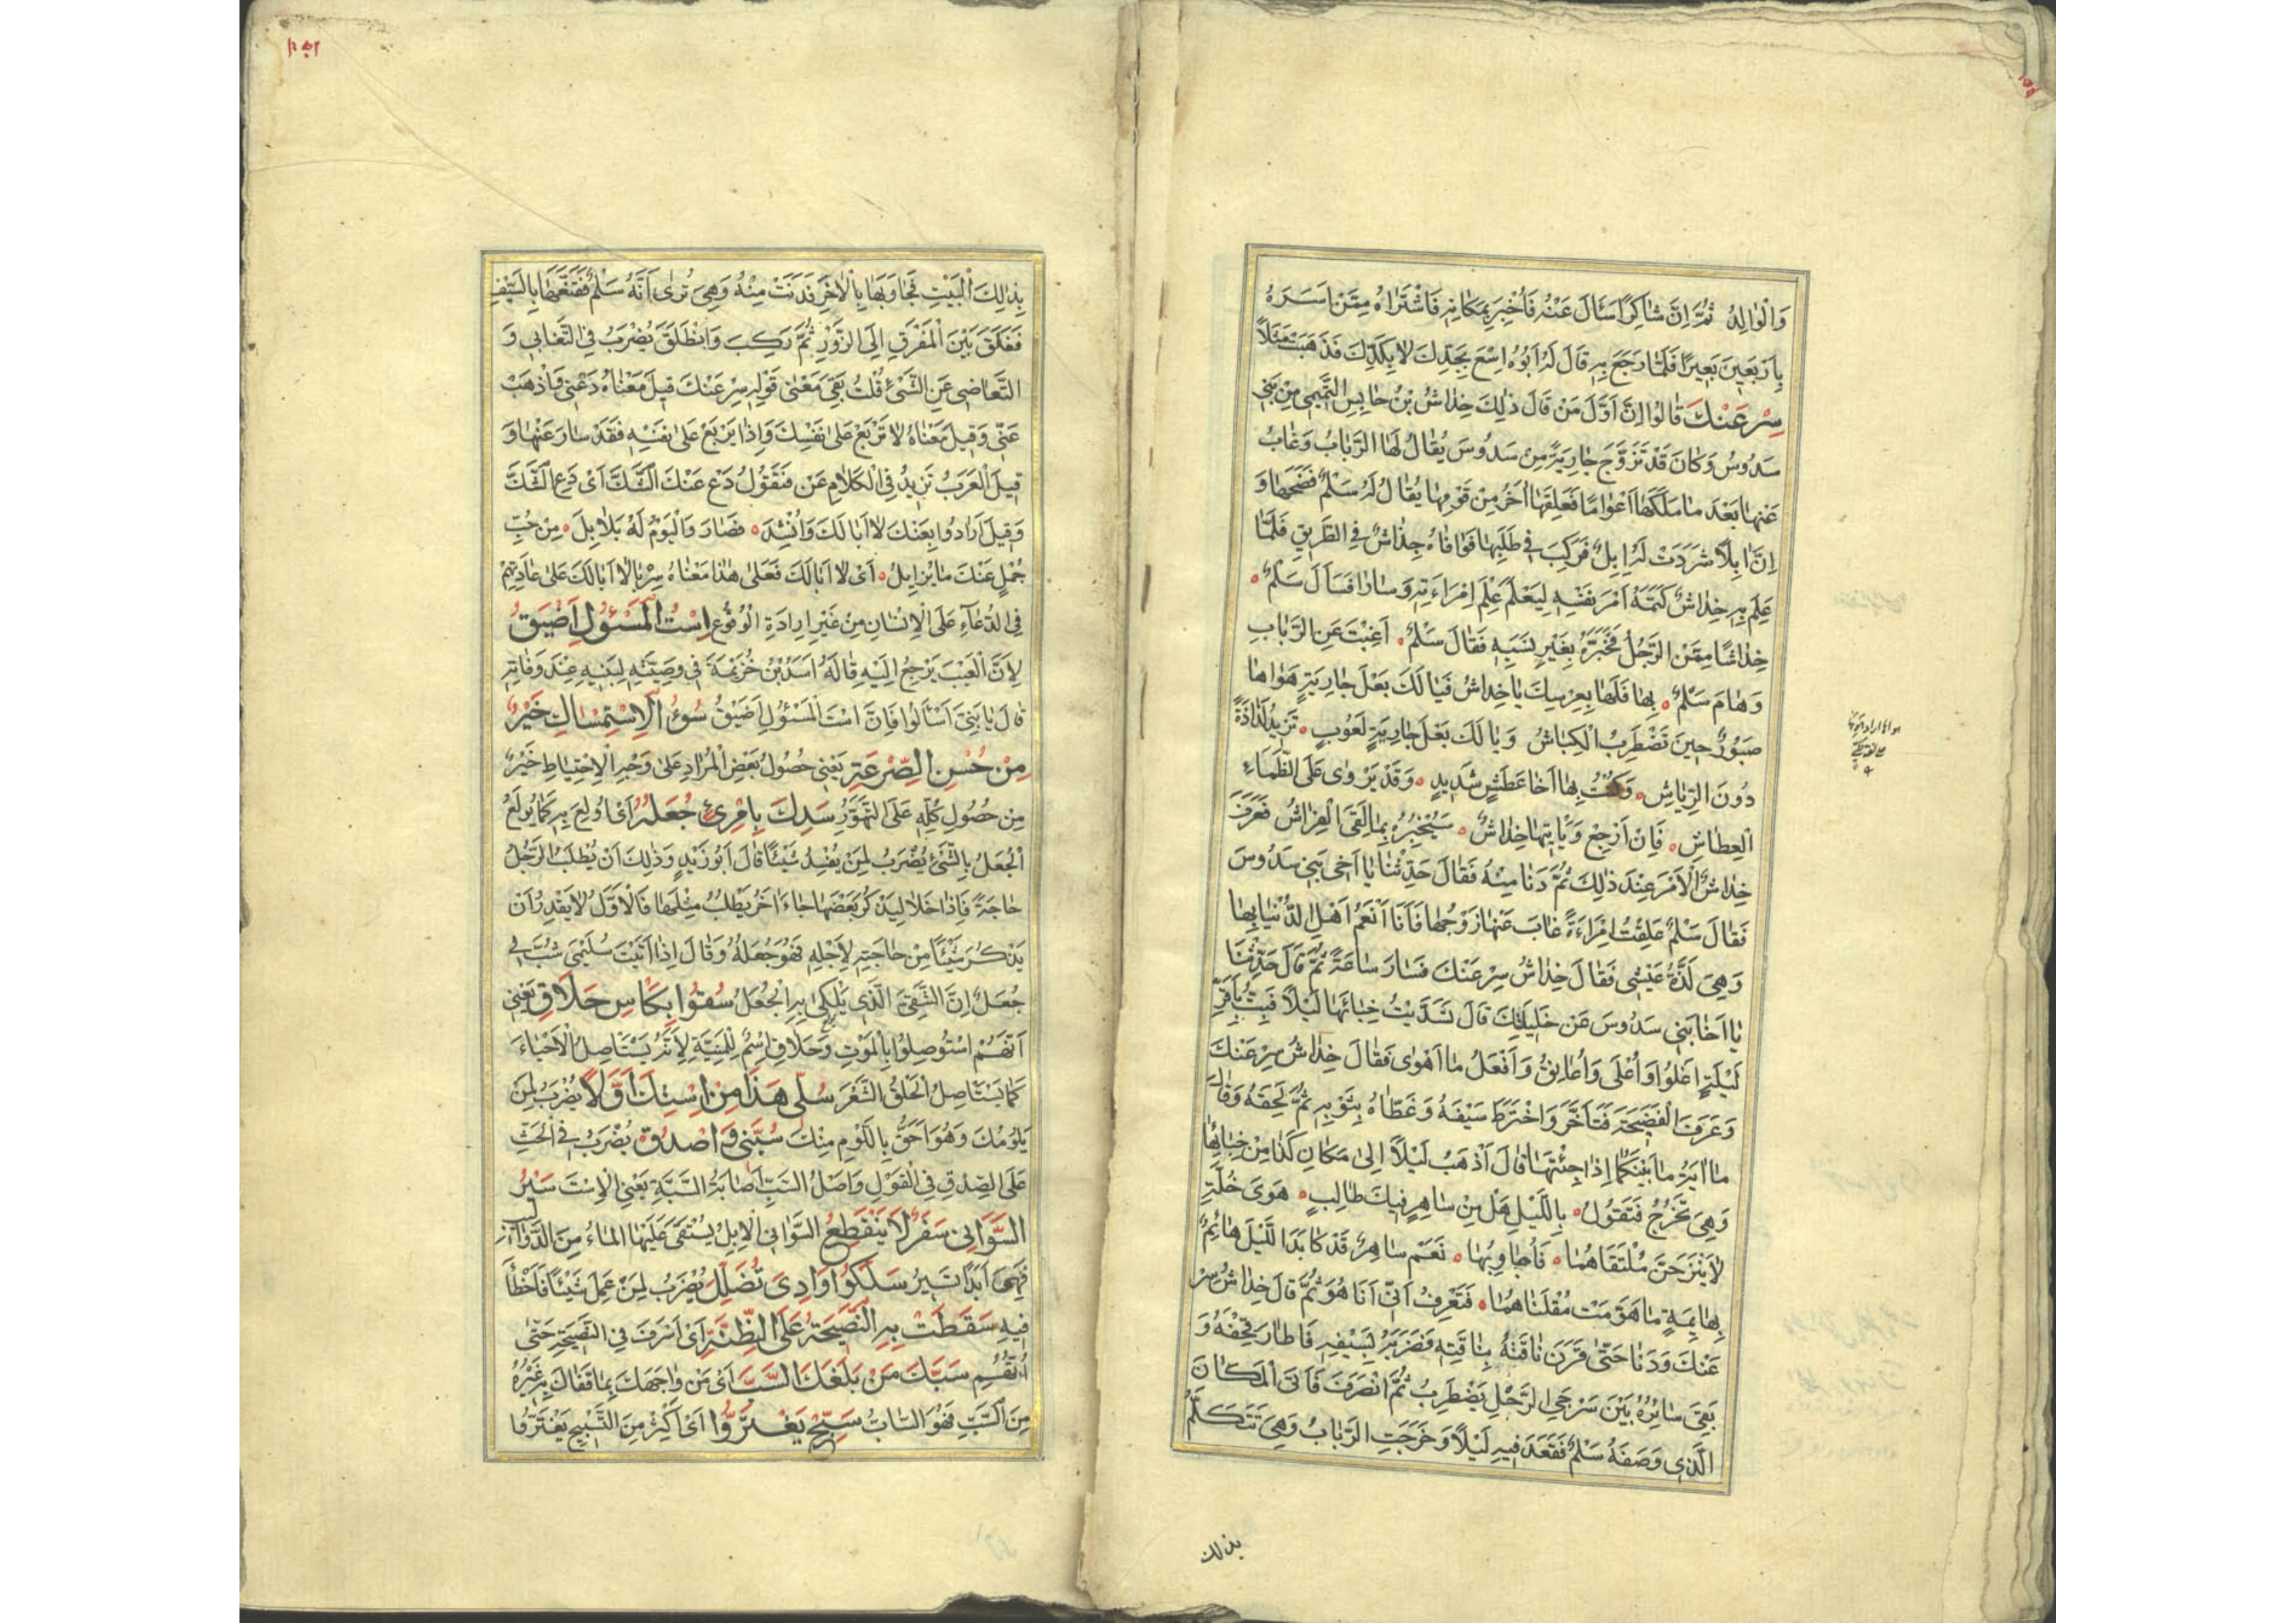 وَالْوَالِدُ ثُمَّ إِنَّ شَاكِرًا سَئَالَ عَنْهُ فَأُخْبِرَ بِمَكَانِهِ فَاشْتَرَاهُ مِمَّنْ اَسَرَهُ
بِاَرْبَعِينَ بَعِيرًا فَلَمَّا رَجَعَ بِهِ قَالَ لَهُ اَبُوهُ اِسْعَ بِجَدِّكَ لَا بِكَدِّكَ فَذَهَبَتْ مَثَلًا
سِرْ عَنْكَ قَالُوا اِنَّ اَوَّلَ مَنْ قَالَ ذٰلِكَ خِدَاشُ بْنُ حَابِسِ التَّمِيمِي مِنْ بَنِي
سَدُوسُ وَكَانَ قَدْ تَزَوَّجَ جَارِيَةً مِنْ سَدُوسَ يُقَالُ لَهَا الرَّبَابُ وَغَابُ
عَنْهَا بَعْدَ مَا مَلَكَهَا اَعْوَامًا فَعَلِقَهَا اٰخَرُ مِنْ قَوْمِهَا يُقَالُ لَهُ سَلْمٌ فَفَضَحَهَا وَ
اِنَّ اِبِلًا شَرَدَتْ لَهُ اِبِلٌ فَرَكِبَ فِي طَلَبِهَا فَوَافَاهُ خِدَاشٌ فِي الطَّرِيقِ فَلَمَّا
عَلِمَ بِهِ خِدَاشٌ كَتَمَهُ اَمْرَ نَفْسِهِ لِيَعْلَمَ عِلْمَ اِمْرَاءَتِهِ وَسَارَا فَسَاَلَ سَلْمٌ
خِدَاشًا مِمَّنِ الرَّجُلُ فَخَبَّرَهُ بِغَيْرِ نَسَبِهِ فَقَالَ سَلْمٌ اَغِبْتَ عَنِ الرَّبَابِ
وَهَامَ سَلْمٌ بِهَا فَلَهَا بِعِرْسِكَ يَا خِدَاشُ فَيَا لَكَ بَعْلَ جَارِيَةٍ هَوَاهَا
صَبُورٌ حِينَ تَضْطَرِبُ الْكِبَاشُ وَيَا لَكَ بَعْلَ جَارِيَةٍ لَعُوبٍ تَزِيدُ لَذَاذَةً
دُونَ الرِّيَاشِ وَكُنْتُ بِهَا اَخَا عَطَشٍ شَدِيدٍ وَقَدْ يَرْوٰى عَلَى الظَّمَاءِ
الْعِطَاشِ فَاِنْ اَرْجِعْ وَيَاْتِيهَا خِدَاشٌ سَيُخْبِرُهُ بِمَا لَقَى الْفِرَاشُ فَعَرَفَ
خِدَاشُ الْاَمْرَ عِنْدَ ذٰلِكَ ثُمَّ دَنَا مِنْهُ فَقَالَ حَدِّثْنَا يَا اَخِي بَنِي سَدُوسَ
فَقَالَ سَلْمٌ عَلِقْتُ اِمْرَاءَةً غَابَ عَنْهَا زَوْجُهَا فَاَنَا اَنْعَمُ اَهْلِ الدُّنْيَا بِهَا
وَهِيَ لَذَّةُ عَيْشِي فَقَالَ خِدَاشُ سِرْ عَنْكَ فَسَارَ سَاعَةً ثُمَّ قَالَ حَدِّثْنَا
يَا اَخَا بَنِي سَدُوسَ عَنْ خَلِيلَتِكَ قَالَ تَسَدَّيْتُ خِبَائَهَا لَيْلًا فَبِتُّ بِاَقَرِّ
لَيْلَةٍ اَعْلُو وَأُعْلَى وَأُعَانِقُ وَاَفْعَلُ مَا اَهْوٰى فَقَالَ خِدَاشُ سِرْ عَنْكَ
وَعَرَفَ الْفَضِيحَةَ فَتَأَخَّرَ وَاخْتَرَطَ سَيْفَهُ وَغَطَّاهُ بِثَوْبِهِ ثُمَّ لَحِقَهُ وَقَالَ
مَا اٰيَةُ مَا بَيْنَكُمَا اِذَا جِئْتَهَا قَالَ اَذْهَبُ لَيْلًا اِلٰى مَكَانِ كَذَا مِنْ خِبَائِهَا
وَهِيَ تَخْرُجُ فَتَقُولُ بِاللَّيْلِ هَلْ مِنْ سَاهِرٍ فِيكَ طَالِبٍ هَوَى خُلَّةٍ
لَا يَنْزَحَنَّ مُلْتَقَاهُمَا فَاُجَاوِبُهَا نَعَمْ سَاهِرٌ قَدْ كَابَدَ اللَّيْلَ هَائِمٌ
بِهَائِمَةٍ مَا هَوَّمَتْ مُقْلَتَاهُمَا فَتَعْرِفُ اَنِّي اَنَا هُوَ ثُمَّ قَالَ خِدَاشُ سِرْ
عَنْكَ وَدَنَا حَتّٰى قَرَنَ نَاقَتَهُ بِنَاقَتِهِ فَضَرَبَهُ بِسَيْفِهِ فَاَطَارَ قِحْفَهُ وَ
بَقِيَ سَائِرُهُ بَيْنَ سَرْجَيِ الرَّحْلِ يَضْطَرِبُ ثُمَّ انْصَرَفَ فَاَتَى الْمَكَانَ
الَّذِي وَصَفَهُ سَلْمٌ فَقَعَدَ فِيهِ لَيْلًا وَخَرَجَتِ الرَّبَابُ وَهِيَ تَتَكَلَّمُ
بذلك
بِذٰلِكَ الْبَيْتِ فَجَاوَبَهَا بِالْاٰخِرِ فَدَنَتْ مِنْهُ وَهِيَ تُرٰى اَنَّهُ سَلْمٌ فَقَنَّعَهَا بِالسَّيْفِ
فَفَلَقَ بَيْنَ الْمَفْرَقِ اِلَى الزَّوْرِ ثُمَّ رَكِبَ وَانْطَلَقَ يُضْرَبُ فِي التَّغَابِي وَ
التَّعَاضِي عَنِ الشَّيْءِ قُلْتُ بَقِيَ مَعْنٰى قَوْلِهِ سِرْ عَنْكَ قِيلَ مَعْنَاهُ دَعْنِي وَاذْهَبْ
عَنِّي وَقِيلَ مَعْنَاهُ لَا تَرْبَعْ عَلٰى نَفْسِكَ وَاِذَا يَرْبَعْ عَلٰى نَفْسِهِ فَقَدْ سَارَ عَنْهَا وَ
قِيلَ الْعَرَبُ تَزِيدُ فِي الْكَلَامِ عَنْ فَتَقُولُ دَعْ عَنْكَ الشَّكَّ اَيْ دَعِ الشَّكَّ
وَقِيلَ اَرَادُوا بِعَنْكَ لَا اَبَا لَكَ وَاُنْشِدَ فَصَارَ وَالْيَوْمُ لَهُ بَلَابِلَ مِنْ حُبِّ
جُمْلٍ عَنْكَ مَا يُزَايِلُ اَيْ لَا اَبَالَكَ فَعَلٰى هٰذَا مَعْنَاهُ سِرْ بِالَا اَبَالَكَ عَلٰى عَادَتِهِمْ
فِي الدُّعَاءِ عَلَى الْاِنْسَانِ مِنْ غَيْرِ اِرَادَةِ الْوُقُوعِ اِسْتُ الْمَسْئُولِ اَضْيَقُ
لِاَنَّ الْعَيْبَ يَرْجِعُ اِلَيْهِ قَالَهُ اَسَدُ بْنُ خُزَيْمَةَ فِي وَصِيَّتِهِ لِبَنِيهِ عِنْدَ وَفَاتِهِ
قَالَ يَا بَنِيَّ اسْأَلُوا فَاِنَّ اسْتَ الْمَسْئُولِ اَضْيَقُ سُوءُ الْاِسْتِمْسَاكِ خَيْرٌ
مِنْ حُسْنِ الصِّرْعَةِ يَعْنِي حُصُولُ بَعْضِ الْمُرَادِ عَلٰى وَجْهِ الْاِحْتِيَاطِ خَيْرٌ
مِنْ حُصُولِ كُلِّهِ عَلَى التَّهَوُّرِ سَدِكَ بِامْرِئٍ جُعَلُهُ اَيْ اُولِعَ بِهِ كَمَا يُولَعُ
الْجُعَلُ بِالشَّيْءِ يُضْرَبُ لِمَنْ يُفْسِدُ شَيْئًا قَالَ اَبُو زَيْدٍ وَذٰلِكَ اَنْ يَطْلُبَ الرَّجُلُ
حَاجَةً فَاِذَا خَلَا لِيَذْكُرَ بَعْضَهَا جَاءَ اٰخَرُ يَطْلُبُ مِثْلَهَا فَالْاَوَّلُ لَا يَقْدِرُ اَنْ
يَذْكُرَ شَيْئًا مِنْ حَاجَتِهِ لِاَجْلِهِ فَهُوَ جُعَلُهُ وَقَالَ اِذَا اَتَيْتَ سُلَيْمٰى شُبَّ لِي
جُعَلٌ اِنَّ الشَّقِيَّ الَّذِي يَلْكٰى بِهِ الْجُعَلُ سُقُوا بِكَاْسِ حَلَاقِ يَعْنِي
اَنَّهُمْ اسْتُوصِلُوا بِالْمَوْتِ وَحَلَاقِ اِسْمٌ لِلْمَنِيَّةِ لِاَنَّهُ يَسْتَاصِلُ الْاَحْيَاءَ
كَمَا يَسْتَاصِلُ الْحَلْقُ الشَّعَرَ سُلِي هَذَا مِنِ اسْتِكِ اَوَّلًا يُضْرَبُ لِمَنْ
يَلُومُكَ وَهُوَ اَحَقُّ بِاللَّوْمِ مِنْكَ سُبَّنِي وَاصْدُقْ يُضْرَبُ فِي الْحَثِّ
عَلَى الصِّدْقِ فِي الْقَوْلِ وَاَصْلُ السَّبِّ اَصَابَةُ السَّبَّةِ يَعْنِي الْاِسْتَ سَيْرُ
السَّوَانِي سَفَرٌ لَا يَنْقَطِعُ السَّوَانِي الْاِبِلُ يُسْتَقٰى عَلَيْهَا الْمَاءُ مِنَ الدَّوَالِيبِ
فَهِيَ اَبَدًا تَسِيرُ سَلَكُوا وَادِيَ تُضَلِّلَ يُضْرَبُ لِمَنْ عَمِلَ شَيْئًا فَاَخْطَأَ
فِيهِ سَقَطَتْ بِهِ النَّصِيحَةُ عَلَى الظِّنَّةِ اَيْ اَسْرَفَ فِي النَّصِيحَةِ حَتّٰى
اُتُّهِمَ سَبَّكَ مَنْ بَلَغَكَ السَّبَّ اَيْ مَنْ وَاجَهَكَ بِمَا قَفَاكَ بِهِ غَيْرُهُ
مِنَ السَّبِّ فَهُوَ السَّابُّ سَبِّحْ يَغْتَرُّوا اَيْ اَكْثِرْ مِنَ التَّسْبِيحِ يَغْتَرُّوا